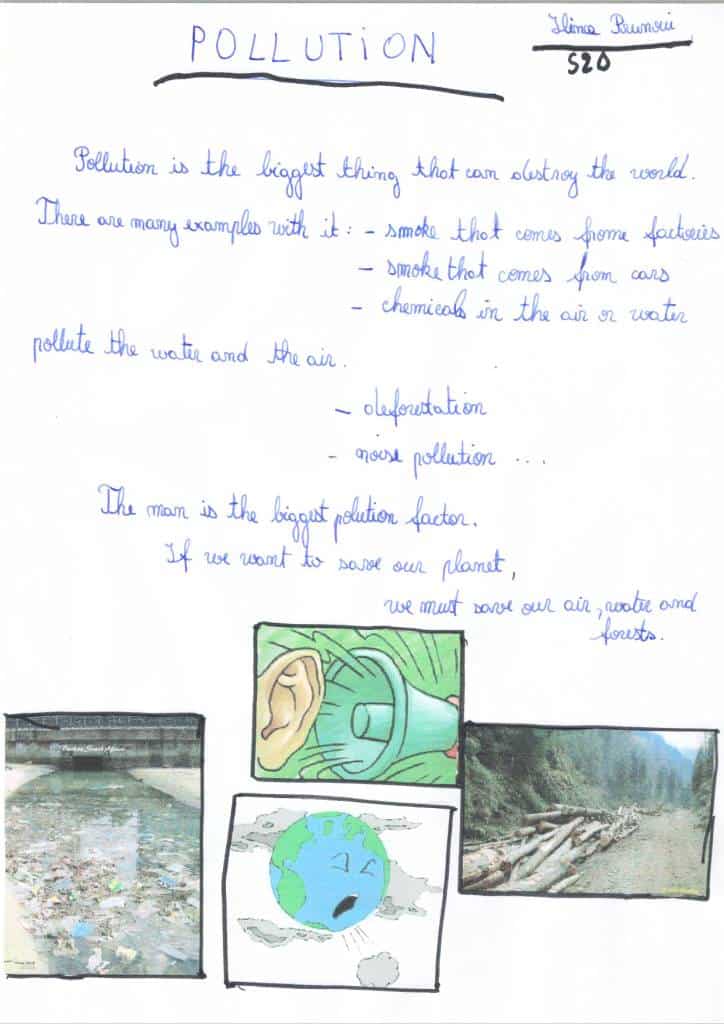 POLLUTION
S20
Pollution is the biggest thing that can destroy the world.
There are many examples with it: - smoke that comes frome factories
- smoke that comes from cars
- chemicals in the air or water
pollute the water and the air.
- deforestation
- noise pollution ...
The man is the biggest polution factor.
If we want to save our planet,
we must save our air, water and
forests.